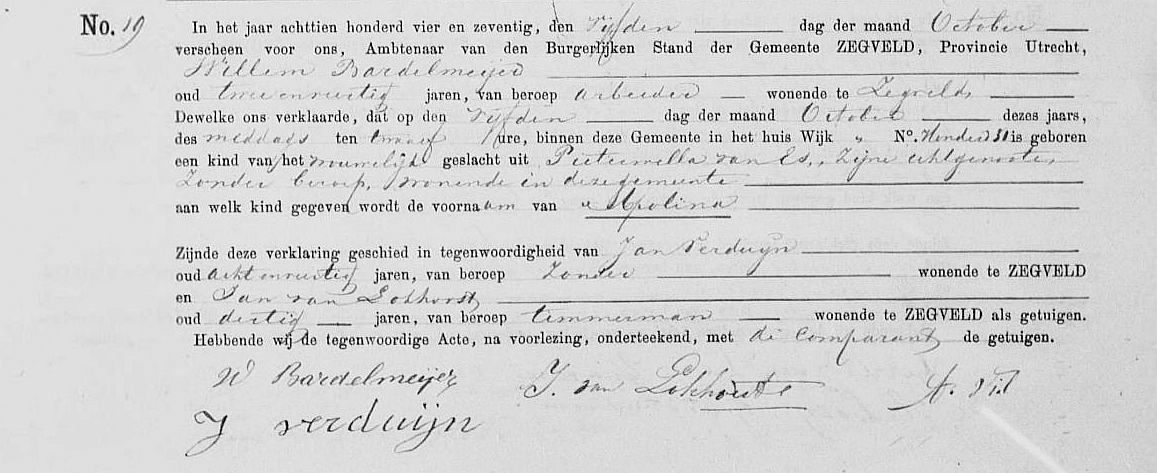 No. 19 In het jaar achttien honderd vier en zeventig, den Vijfden dag der maand October
verscheen voor ons, Ambtenaar van den Burgerlijken Stand der Gemeente ZEGVELD, Provincie Utrecht,
Willem Bardelmeijer
oud twee en veertig jaren, van beroep arbeider wonende te Zegveld
Dewelke ons verklaarde, dat op den Vijfden dag der maand October dezes jaars,
des middags ten twaalf ure, binnen deze Gemeente in het huis Wijk „ No. Honderd 31 is geboren
een kind van het vrouwelijk geslacht uit Pieternella van Es, Zijne echtgenoote,
Zonder beroep, wonende in deze gemeente
aan welk kind gegeven wordt de voornaam van Apolina
Zijnde deze verklaring geschied in tegenwoordigheid van Jan Verduijn
oud acht en veertig jaren, van beroep Zonder wonende te ZEGVELD
en Jan van Lokhorst
oud dertig jaren, van beroep timmerman wonende te ZEGVELD als getuigen.
Hebbende wij de tegenwoordige Acte, na voorlezing, onderteekend, met de Comparant de getuigen.
W Bardelmeijer J. van Lokhorst
J verduijn